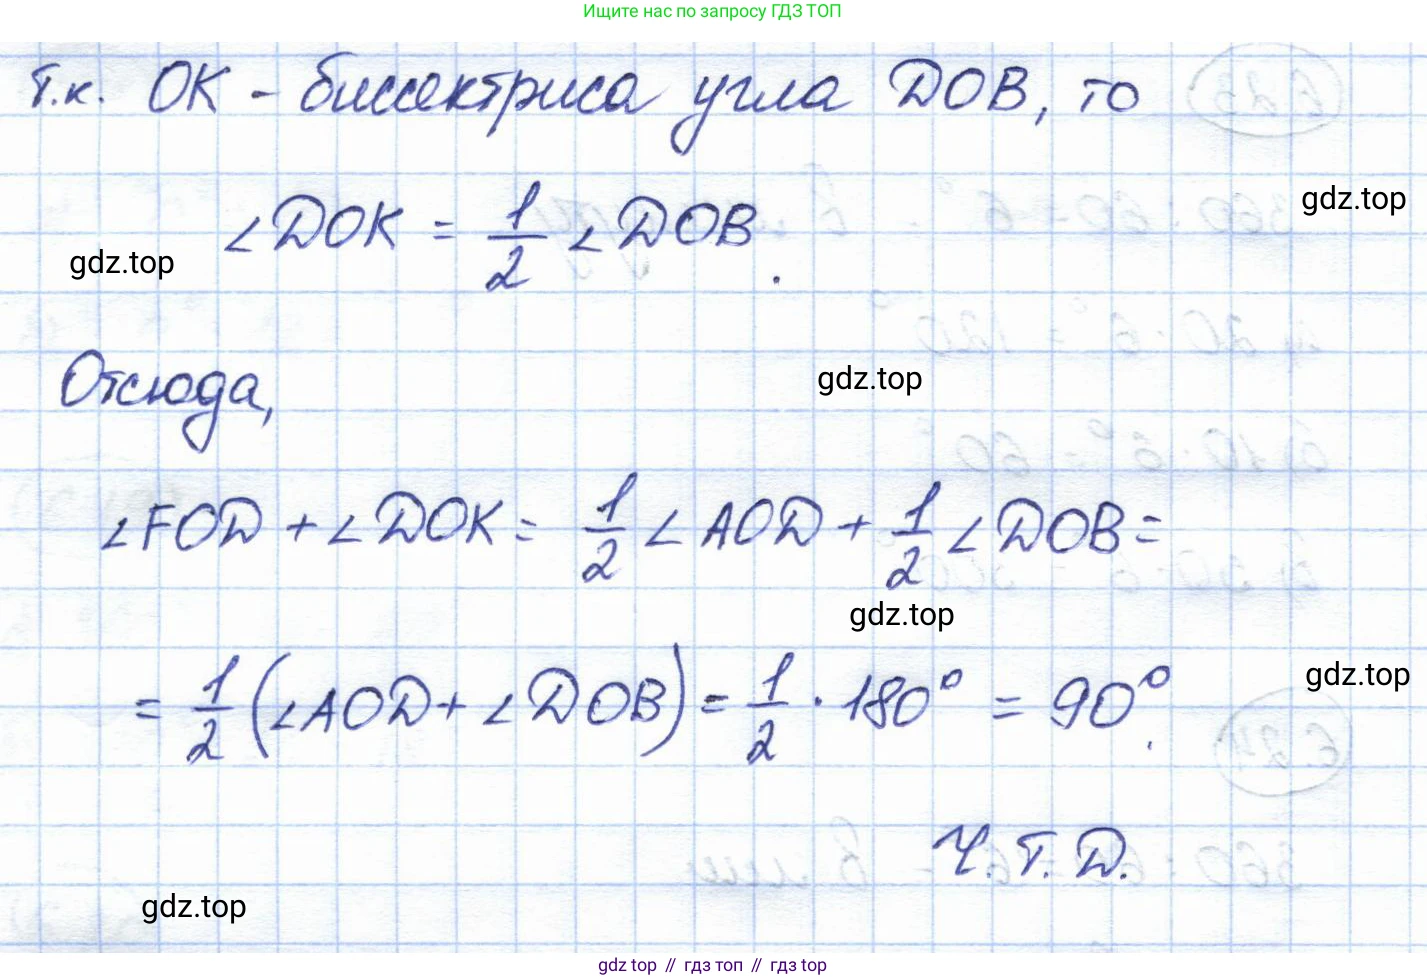 Ищите нас по запросу ГДЗ ТОП
т.к. OK - биссектриса угла DOB, то
gdz.top
∠DOK = 1/2 ∠DOB.
gdz.top
Отсюда,
gdz.top
∠FOD + ∠DOK = 1/2 ∠AOD + 1/2 ∠DOB =
gdz.top
= 1/2 (∠AOD + ∠DOB) = 1/2 · 180° = 90°.
gdz.top
Ч.Т.Д.
gdz.top
gdz top // гдз топ // gdz top